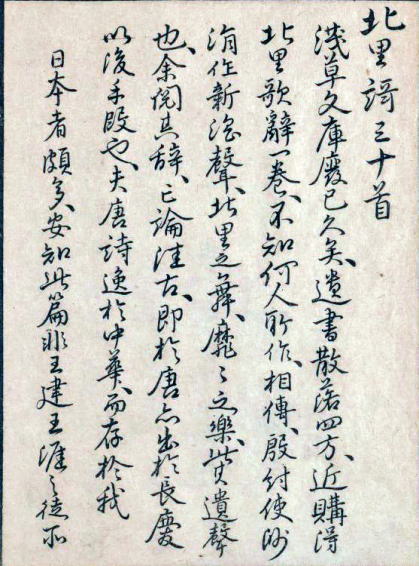 北里謌三十首
淺草文庫廢已久矣、遺書散落四方、近購得
北里歌辭一卷、不知何人所作、相傳、殷紂使師
涓作新淫聲、北里之舞、靡〻之樂、此其遺聲
也、余閲其辞、亡論往古、即於唐亦出於長慶
以後手段也、夫唐詩逸於中華、而存於我
日本者頗多、安知此篇非王建王涯之徒所